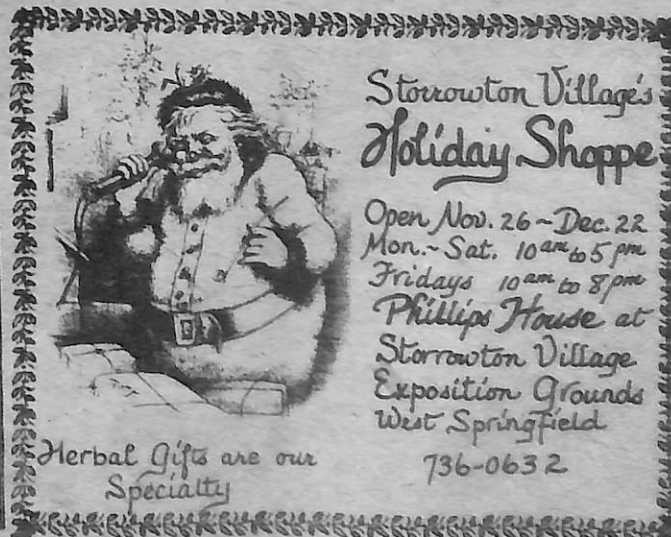 Storrowton Village's
Holiday Shoppe
Open Nov. 26 ~ Dec. 22
Mon. ~ Sat. 10 am to 5 pm
Fridays 10 am to 8 pm
Phillips House at
Storrowton Village
Exposition Grounds
West Springfield
736-0632
Herbal Gifts are our
Specialty